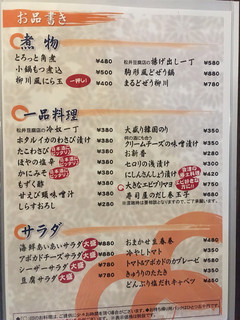 お品書き
煮物
とろっと角煮 ¥480
小鍋もつ煮込 ¥500
柳川風にら玉 ¥480
松井豆腐店の揚げ出し一丁 ¥580
駒形風どぜう鍋 ¥780
まるどぜう柳川 ¥780
一品料理
松井豆腐店の冷奴一丁 ¥380
ホタルイカのわさび漬け ¥380
たこわさび ¥380
ほやの塩辛 ¥380
かにみそ ¥380
もずく酢 ¥380
甘えび頭味噌汁 ¥380
しらすおろし ¥280
大盛り韓国のり ¥350
クリームチーズの味噌漬け ¥350
お新香 ¥380
セロリの浅漬け ¥380
にしんさんしょう漬け ¥380
大きなエビプリマヨ ¥750
寿司屋のだし巻玉子 ¥780
サラダ
海鮮あいあいサラダ 大盛 ¥880
アボカドチーズサラダ 大盛 ¥780
シーザーサラダ 大盛 ¥780
豆腐サラダ 大盛 ¥780
おまかせ生春巻 ¥480
冷やしトマト ¥350
トマト&アボカドのカプレーゼ ¥380
きゅうりのたたき ¥350
どんぶり塩だれキャベツ ¥380